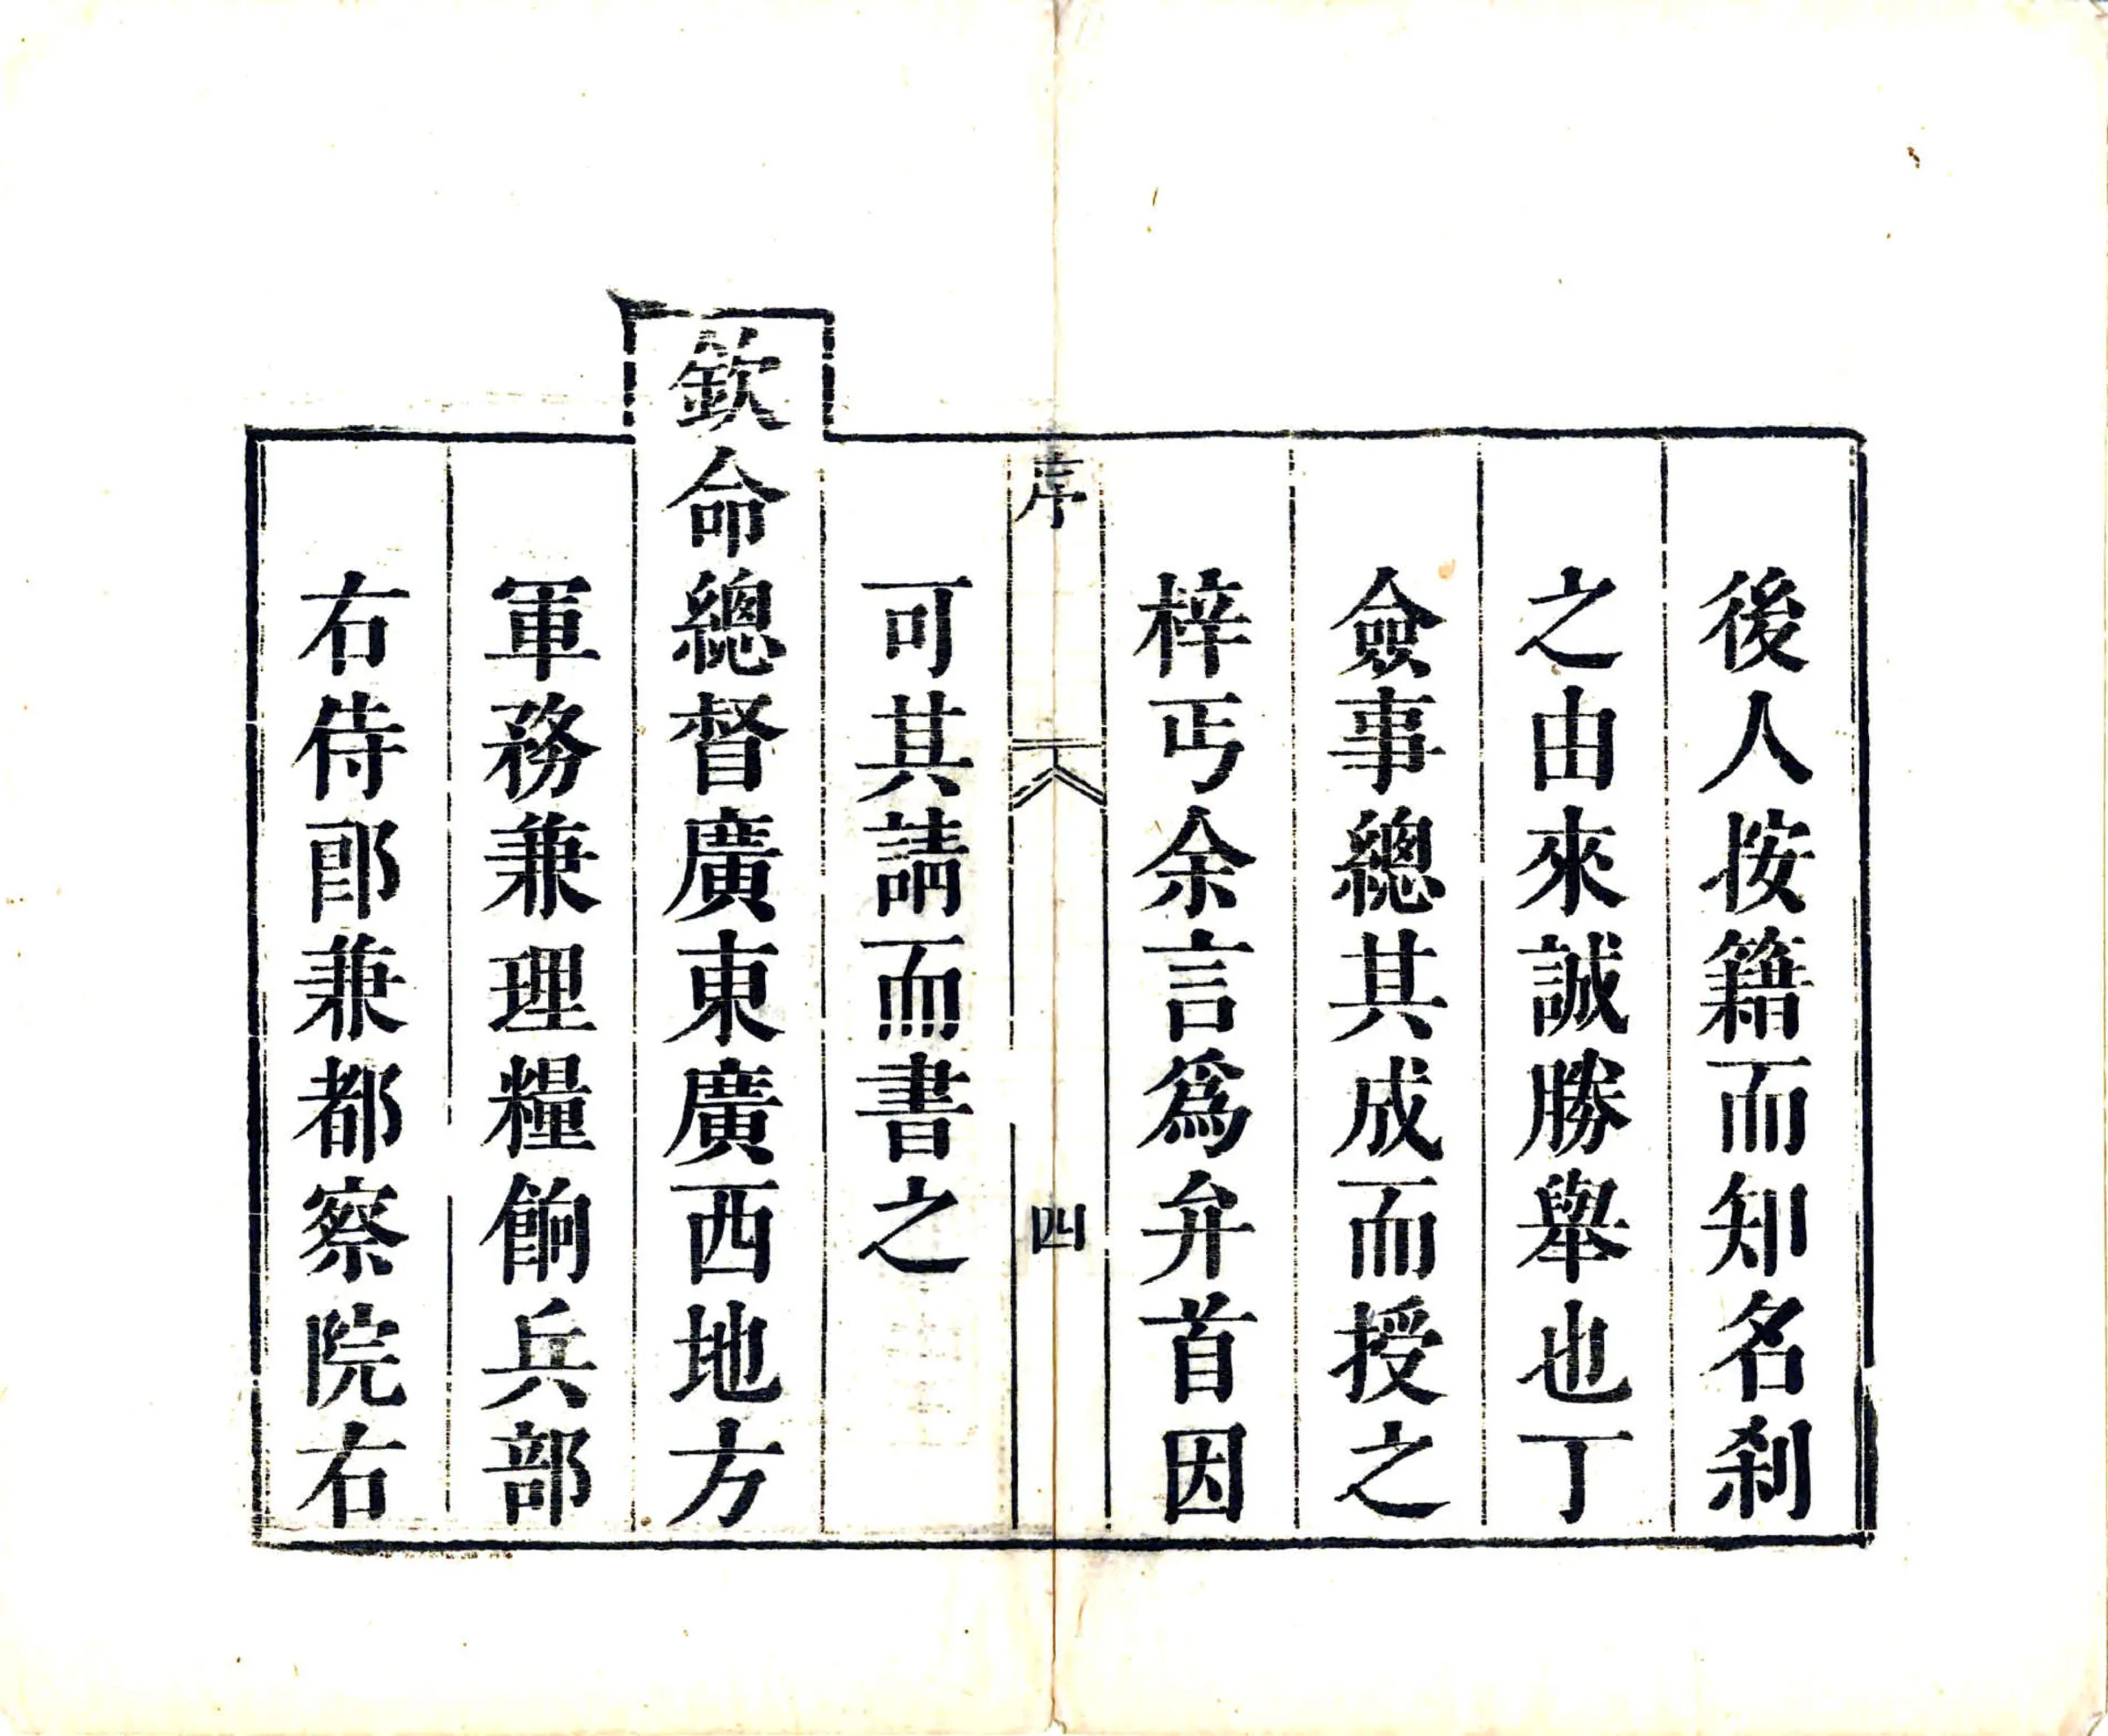 後人按籍而知名刹
之由來誠勝舉也丁
僉事總其成而授之
梓丐余言爲弁首因
序
四
可其請而書之
欽命總督廣東廣西地方
軍務兼理糧餉兵部
右侍郎兼都察院右